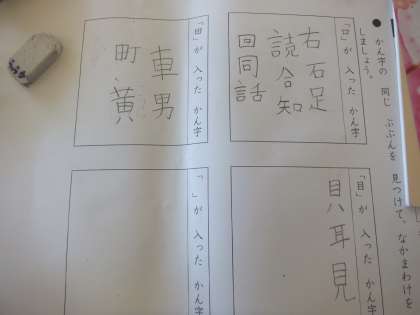 ● かん字の 同じ ぶぶんを 見つけて、なかまわけを
しましょう。
「口」が 入った かん字
右石足
読合知
回同話
「田」が 入った かん字
車男
町黄
「目」が 入った かん字
貝耳見
「 」が 入った かん字